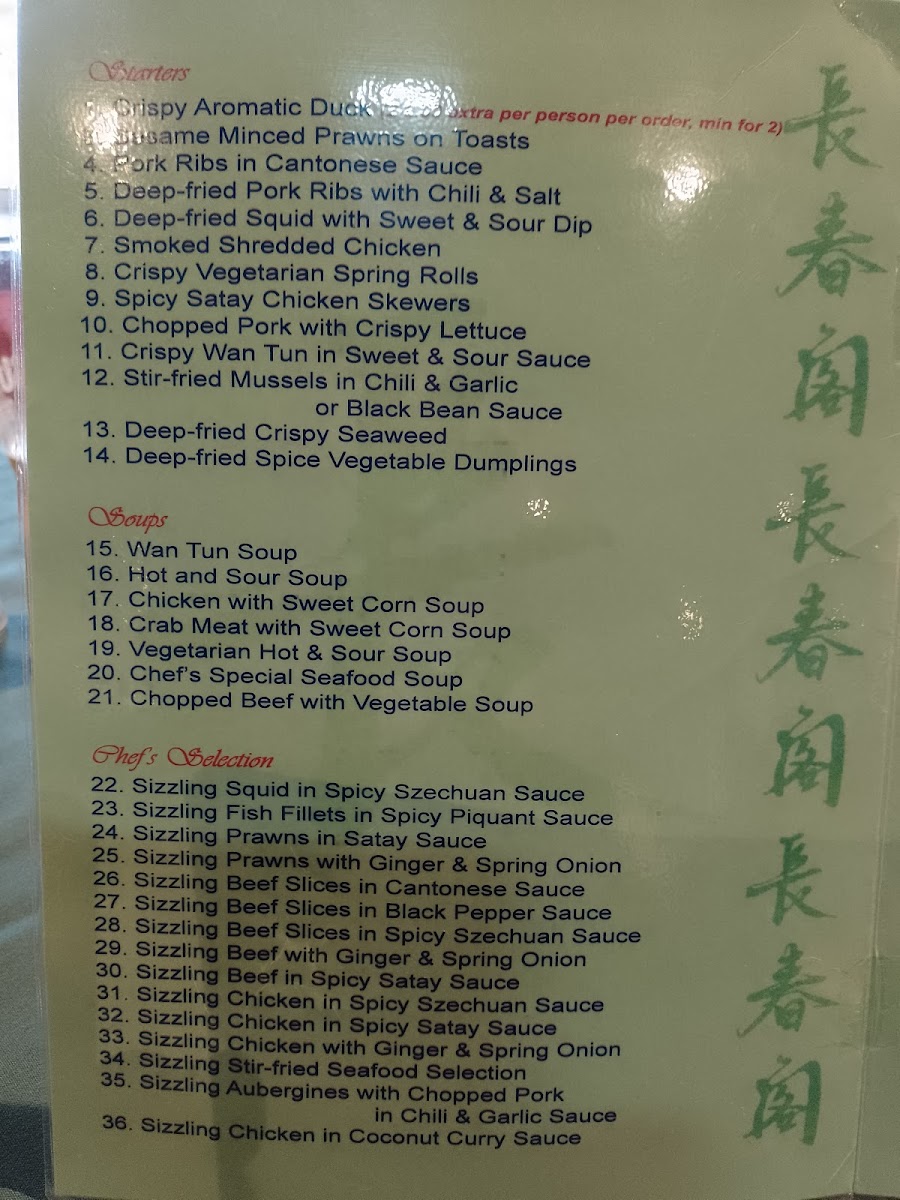 Starters
Crispy Aromatic Duck extra per person per order, min for 2)
Sesame Minced Prawns on Toasts
4. Pork Ribs in Cantonese Sauce
5. Deep-fried Pork Ribs with Chili & Salt
6. Deep-fried Squid with Sweet & Sour Dip
7. Smoked Shredded Chicken
8. Crispy Vegetarian Spring Rolls
9. Spicy Satay Chicken Skewers
10. Chopped Pork with Crispy Lettuce
11. Crispy Wan Tun in Sweet & Sour Sauce
12. Stir-fried Mussels in Chili & Garlic
or Black Bean Sauce
13. Deep-fried Crispy Seaweed
14. Deep-fried Spice Vegetable Dumplings
Soups
15. Wan Tun Soup
16. Hot and Sour Soup
17. Chicken with Sweet Corn Soup
18. Crab Meat with Sweet Corn Soup
19. Vegetarian Hot & Sour Soup
20. Chef's Special Seafood Soup
21. Chopped Beef with Vegetable Soup
Chef's Selection
22. Sizzling Squid in Spicy Szechuan Sauce
23. Sizzling Fish Fillets in Spicy Piquant Sauce
24. Sizzling Prawns in Satay Sauce
25. Sizzling Prawns with Ginger & Spring Onion
26. Sizzling Beef Slices in Cantonese Sauce
27. Sizzling Beef Slices in Black Pepper Sauce
28. Sizzling Beef Slices in Spicy Szechuan Sauce
29. Sizzling Beef with Ginger & Spring Onion
30. Sizzling Beef in Spicy Satay Sauce
31. Sizzling Chicken in Spicy Szechuan Sauce
32. Sizzling Chicken in Spicy Satay Sauce
33. Sizzling Chicken with Ginger & Spring Onion
34. Sizzling Stir-fried Seafood Selection
35. Sizzling Aubergines with Chopped Pork
in Chili & Garlic Sauce
36. Sizzling Chicken in Coconut Curry Sauce
長春閣長春閣長春閣